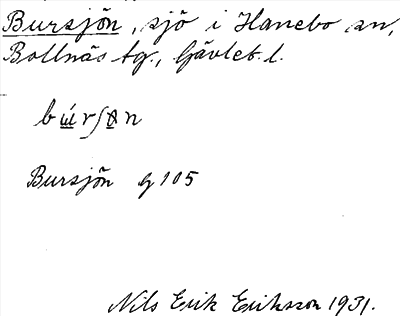 Bursjön, sjö i Hanebo sn,
Bollnäs tg., Gävleb. l.
Bursjön g 105
Nils Erik Eriksson 1931.